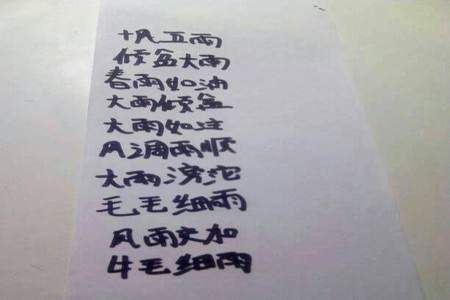 十风五雨
倾盆大雨
春雨如油
大雨倾盆
大雨如注
风调雨顺
大雨滂沱
毛毛细雨
风雨交加
牛毛细雨